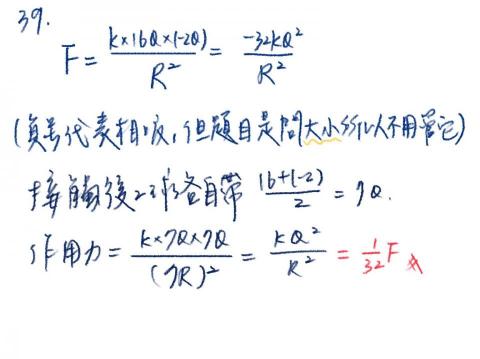 39.
F = k×16Q×(-2Q) / R² = -32kQ² / R²
(負号代表相吸,但題目是問大小所以不用管它)
接觸後2球各自帶 16+(-2) / 2 = 7Q.
作用力 = k×7Q×7Q / (7R)² = kQ² / R² = 1/32 F